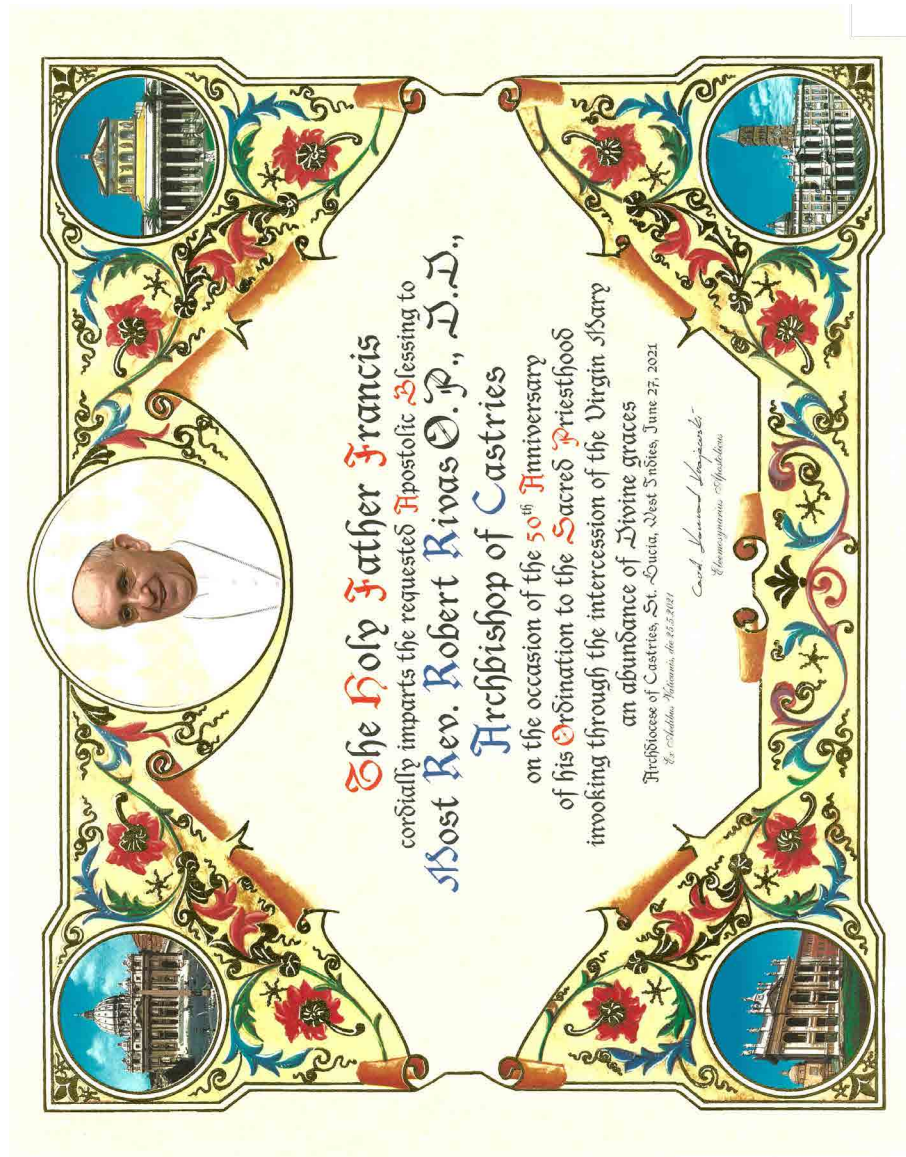 The Holy Father Francis
cordially imparts the requested Apostolic Blessing to
Most Rev. Robert Rivas O.P., D.D.,
Archbishop of Castries
on the occasion of the 50th Anniversary
of his Ordination to the Sacred Priesthood
invoking through the intercession of the Virgin Mary
an abundance of Divine graces
Archdiocese of Castries, St. Lucia, West Indies, June 27, 2021
Ex Aedibus Vaticanis, die 25.5.2021
Eleemosynarius Apostolicus